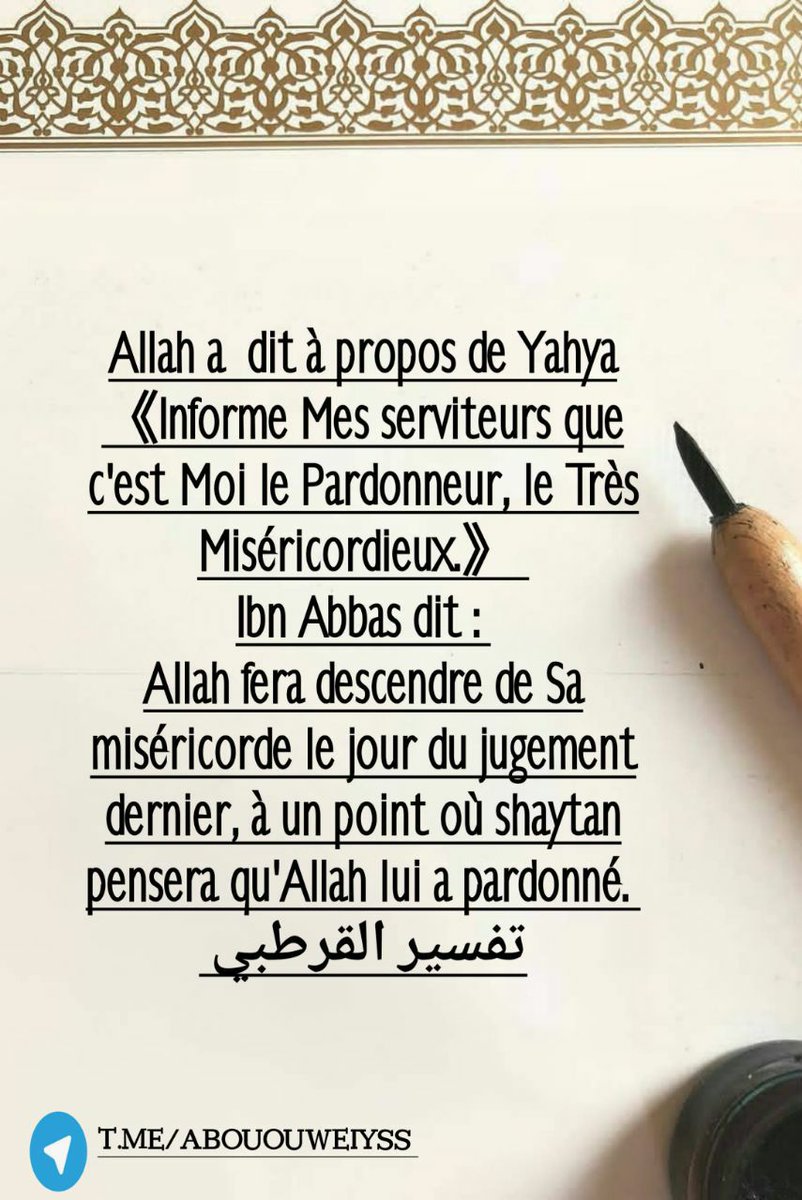 Allah a  dit à propos de Yahya
《Informe Mes serviteurs que
c'est Moi le Pardonneur, le Très
Miséricordieux.》
Ibn Abbas dit :
Allah fera descendre de Sa
miséricorde le jour du jugement
dernier, à un point où shaytan
pensera qu'Allah lui a pardonné.
تفسير القرطبي
T.ME/ABOUOUWEIYSS